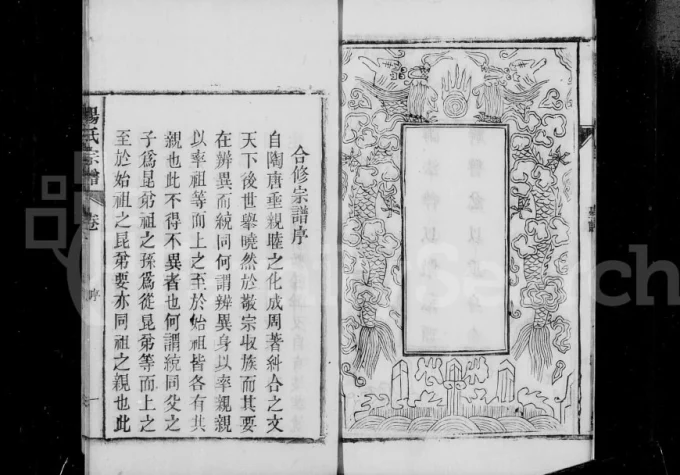 合修宗譜序
自陶唐垂親睦之化成周著糾合之文
天下後世舉曉然於敬宗收族而其要
在辨異而統同何謂辨異身以率親親
以率祖等而上之至於始祖皆各有共
親也此不得不異者也何謂統同父之
子爲昆弟祖之孫爲從昆弟等而上之
至於始祖之昆弟要亦同祖之親也此
楊氏宗譜
卷
序
一